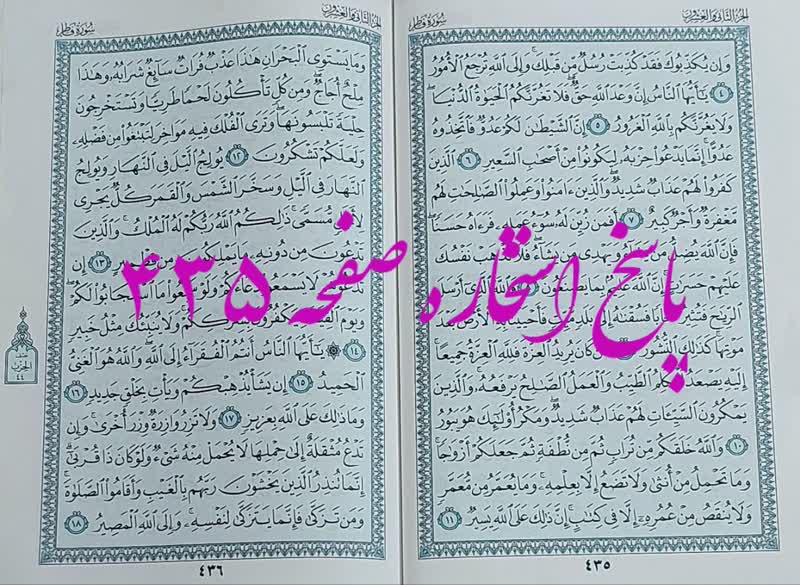 الجزء الثاني والعشرون
سورة فاطر
وَإِن يُكَذِّبُوكَ فَقَدْ كُذِّبَتْ رُسُلٌ مِّن قَبْلِكَ وَإِلَى اللَّهِ تُرْجَعُ الْأُمُورُ
﴿٤﴾ يَٰٓأَيُّهَا النَّاسُ إِنَّ وَعْدَ اللَّهِ حَقٌّ فَلَا تَغُرَّنَّكُمُ الْحَيَوٰةُ الدُّنْيَا
وَلَا يَغُرَّنَّكُم بِاللَّهِ الْغَرُورُ ﴿٥﴾ إِنَّ الشَّيْطَٰنَ لَكُمْ عَدُوٌّ فَاتَّخِذُوهُ
عَدُوًّا إِنَّمَا يَدْعُوا حِزْبَهُ لِيَكُونُوا مِنْ أَصْحَٰبِ السَّعِيرِ ﴿٦﴾ الَّذِينَ
كَفَرُوا لَهُمْ عَذَابٌ شَدِيدٌ وَالَّذِينَ ءَامَنُوا وَعَمِلُوا الصَّٰلِحَٰتِ لَهُم
مَّغْفِرَةٌ وَأَجْرٌ كَبِيرٌ ﴿٧﴾ أَفَمَن زُيِّنَ لَهُ سُوٓءُ عَمَلِهِ فَرَءَاهُ حَسَنًا
فَإِنَّ اللَّهَ يُضِلُّ مَن وَيَهْدِى مَن يَشَآءُ نَفْسُكَ
عَلَيْهِمْ بِمَا يَصْنَعُونَ الَّذِى أَرْسَلَ
الرِّيَٰحَ فَتُثِيرُ سَحَابًا فَسُقْنَٰهُ إِلَىٰ الْأَرْضَ بَعْدَ
مَوْتِهَا كَذَٰلِكَ النُّشُورُ كَانَ يُرِيدُ الْعِزَّةَ فَلِلَّهِ الْعِزَّةُ جَمِيعًا
إِلَيْهِ يَصْعَدُ الْكَلِمُ الطَّيِّبُ وَالْعَمَلُ الصَّٰلِحُ يَرْفَعُهُ وَالَّذِينَ
يَمْكُرُونَ السَّيِّـَٔاتِ لَهُمْ عَذَابٌ شَدِيدٌ وَمَكْرُ أُو۟لَٰٓئِكَ هُوَ يَبُورُ
﴿١٠﴾ وَاللَّهُ خَلَقَكُم مِّن تُرَابٍ ثُمَّ مِن نُّطْفَةٍ ثُمَّ جَعَلَكُمْ أَزْوَٰجًا
وَمَا تَحْمِلُ مِنْ أُنثَىٰ وَلَا تَضَعُ إِلَّا بِعِلْمِهِ وَمَا يُعَمَّرُ مِن مُّعَمَّرٍ
وَلَا يُنقَصُ مِنْ عُمُرِهِ إِلَّا فِى كِتَٰبٍ إِنَّ ذَٰلِكَ عَلَى اللَّهِ يَسِيرٌ ﴿١١﴾
٤٣٥
الجزء الثاني والعشرون
سورة فاطر
وَمَا يَسْتَوِى الْبَحْرَانِ هَٰذَا عَذْبٌ فُرَاتٌ سَآئِغٌ شَرَابُهُ وَهَٰذَا
مِلْحٌ أُجَاجٌ وَمِن كُلٍّ تَأْكُلُونَ لَحْمًا طَرِيًّا وَتَسْتَخْرِجُونَ
حِلْيَةً تَلْبَسُونَهَا وَتَرَى الْفُلْكَ فِيهِ مَوَاخِرَ لِتَبْتَغُوا مِن فَضْلِهِ
وَلَعَلَّكُمْ تَشْكُرُونَ ﴿١٢﴾ يُولِجُ الَّيْلَ فِى النَّهَارِ وَيُولِجُ
النَّهَارَ فِى الَّيْلِ وَسَخَّرَ الشَّمْسَ وَالْقَمَرَ كُلٌّ يَجْرِى
لِأَجَلٍ مُّسَمًّى ذَٰلِكُمُ اللَّهُ رَبُّكُمْ لَهُ الْمُلْكُ وَالَّذِينَ
تَدْعُونَ مِن دُونِهِ مَا يَمْلِكُونَ ﴿١٣﴾ إِن
تَدْعُوهُمْ لَا يَسْمَعُوا دُعَآءَكُمْ وَلَوْ سَمِعُوا مَا اسْتَجَابُوا لَكُمْ
وَيَوْمَ يَكْفُرُونَ بِشِرْكِكُمْ وَلَا يُنَبِّئُكَ مِثْلُ خَبِيرٍ
﴿١٤﴾ ۞ يَٰٓأَيُّهَا النَّاسُ أَنتُمُ الْفُقَرَآءُ إِلَى اللَّهِ وَاللَّهُ هُوَ الْغَنِىُّ
الْحَمِيدُ ﴿١٥﴾ إِن يَشَأْ يُذْهِبْكُمْ وَيَأْتِ بِخَلْقٍ جَدِيدٍ ﴿١٦﴾
وَمَا ذَٰلِكَ عَلَى اللَّهِ بِعَزِيزٍ ﴿١٧﴾ وَلَا تَزِرُ وَازِرَةٌ وِزْرَ أُخْرَىٰ وَإِن
تَدْعُ مُثْقَلَةٌ إِلَىٰ حِمْلِهَا لَا يُحْمَلْ مِنْهُ شَىْءٌ وَلَوْ كَانَ ذَا قُرْبَىٰٓ
إِنَّمَا تُنذِرُ الَّذِينَ يَخْشَوْنَ رَبَّهُم بِالْغَيْبِ وَأَقَامُوا الصَّلَوٰةَ
وَمَن تَزَكَّىٰ فَإِنَّمَا يَتَزَكَّىٰ لِنَفْسِهِ وَإِلَى اللَّهِ الْمَصِيرُ ﴿١٨﴾
٤٣٦
الحزب
٤٤
پاسخ استخاره صفحه ۴۳۵